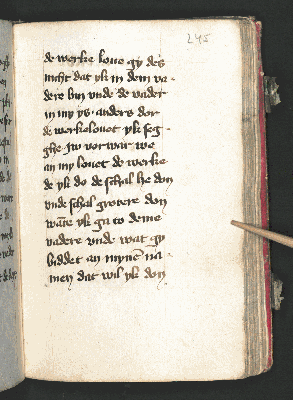 245
de werke loue gy des
nicht dat yk in dem va-
dere bin vnde de vader
in my ys · anders dor
de werke louet yk seg-
ghe jw vorwar we
an my louet de werke
de yk do de schal he don
vnde schal grotere don
wāte yk ga to deme
vadere vnde wat gy
biddet an mynē na-
men dat wil yk don